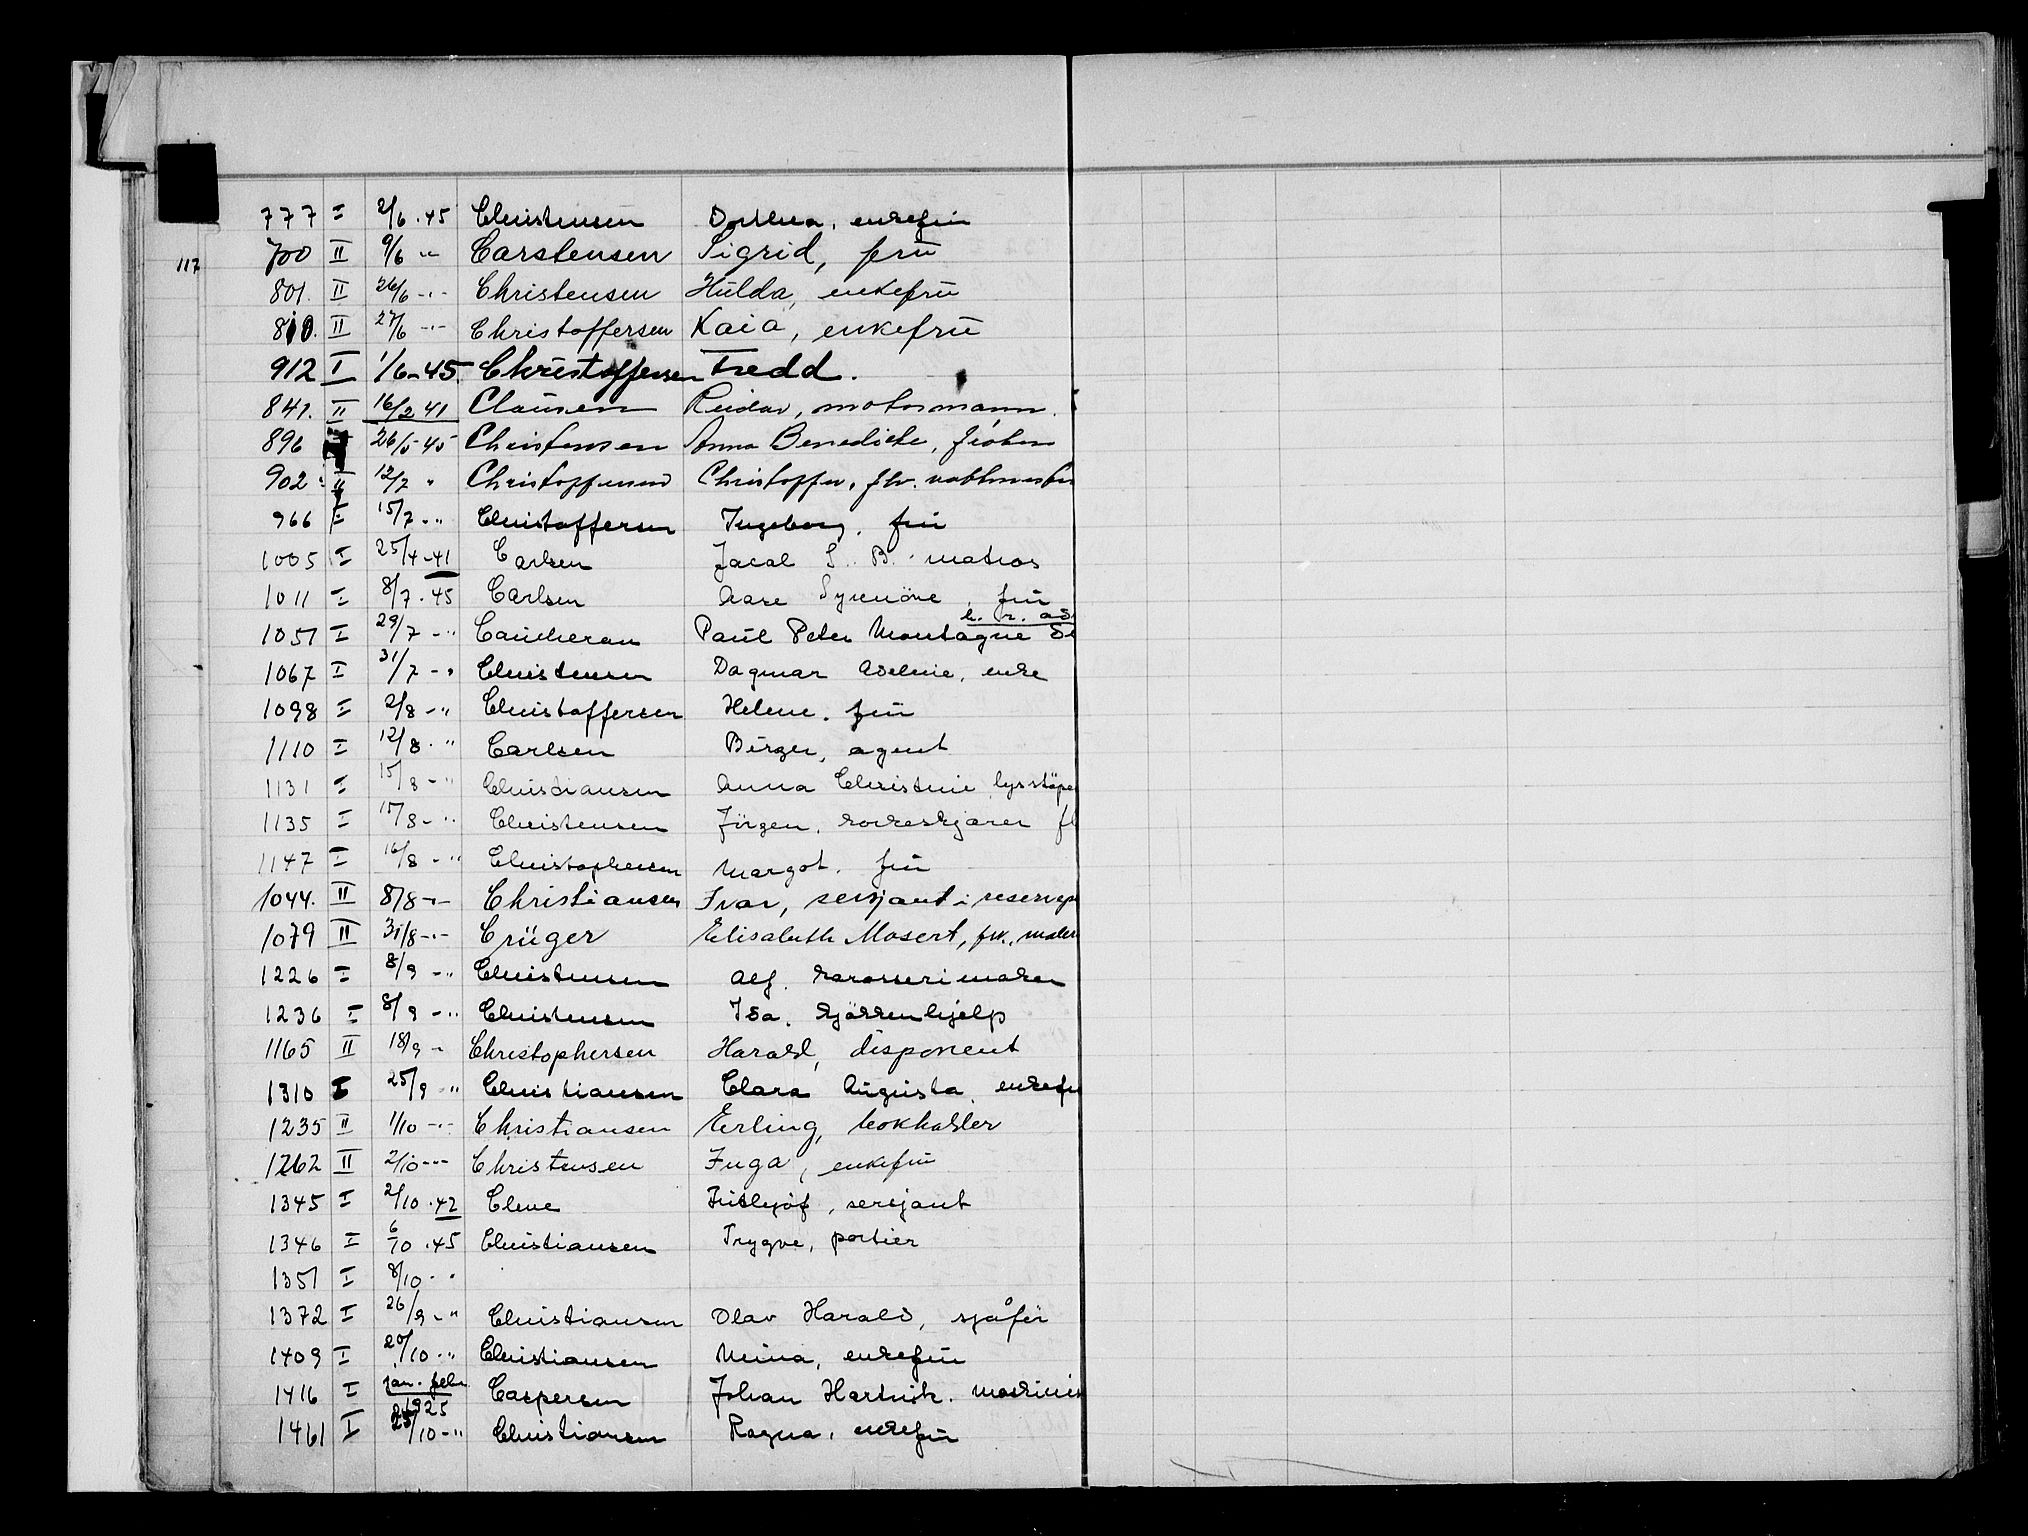 777 I 2/6.45 Christensen Dorthea, enkefru
117 700 II 9/6 " Carstensen Sigrid, fru
801. II 26/6 -"- Christensen Hulda, enkefru
810. II 27/6 -"- Christoffersen Kaia, enkefru
912 I 1/6-45. Christoffersen Fredd.
841. II 16/2 41 Clausen Reidar, motormann.
896 26/5 45 Christensen Anna Benedicte, frøken
902 II 12/7 " Christoffersen Christoffer, fhv.
966 I 15/7 -" Christoffersen Ingeborg, fru
1005 I 25/4-41 Carlsen Jacob S. B. matros
1011 I 8/7.45 Carlsen Aase Synnöve, fru
h. r. ad
1051 I 29/7 -" Caucheron Paul Peter Montague
1067 I 31/7 -" Christensen Dagmar Adeleine, enke
1098 I 2/8 -" Christoffersen Helene, fru
1110 I 12/8 -" Carlsen Birger, agent
1131 I 15/8 -" Christiansen Anna Christine lysstöpe
1135 I 15/8 -" Christensen Jörgen, fl
1147 I 16/8 -" Christophersen Margot, fru
1044. II 8/8 -"- Christiansen Ivar, sersjant i reservep
1079 II 31/8 -"- Crüger Elisabeth Mosert, frk., maler
1226 I 8/9 -" Christensen Alf, karosserimaker
1236 I 8/9 -" Christensen Ida, kjökkenhjelp
1165 II 18/9 - Christophersen Harald, disponent
1310 I 25/9 " Christiansen Clara Augusta, enkefru
1235 II 1/10 -"- Christiansen Erling, bokholder
1262 II 2/10 -"- Christensen Inga, enkefru
1345 I 2/10.42 Cleve Fridtjof, sersjant
1346 I 6/10.45 Christiansen Trygve, portier
1351 I 8/10 - "
1372 I 26/9 -" Christiansen Olav Harald, sjåför
1409 I 20/10 -" Christiansen Minna, enkefru
1416 I jan. febr 1925 Caspersen Johan Hartvik, maskinis
1461 I 25/10 -" Christiansen Ragna, enkefru